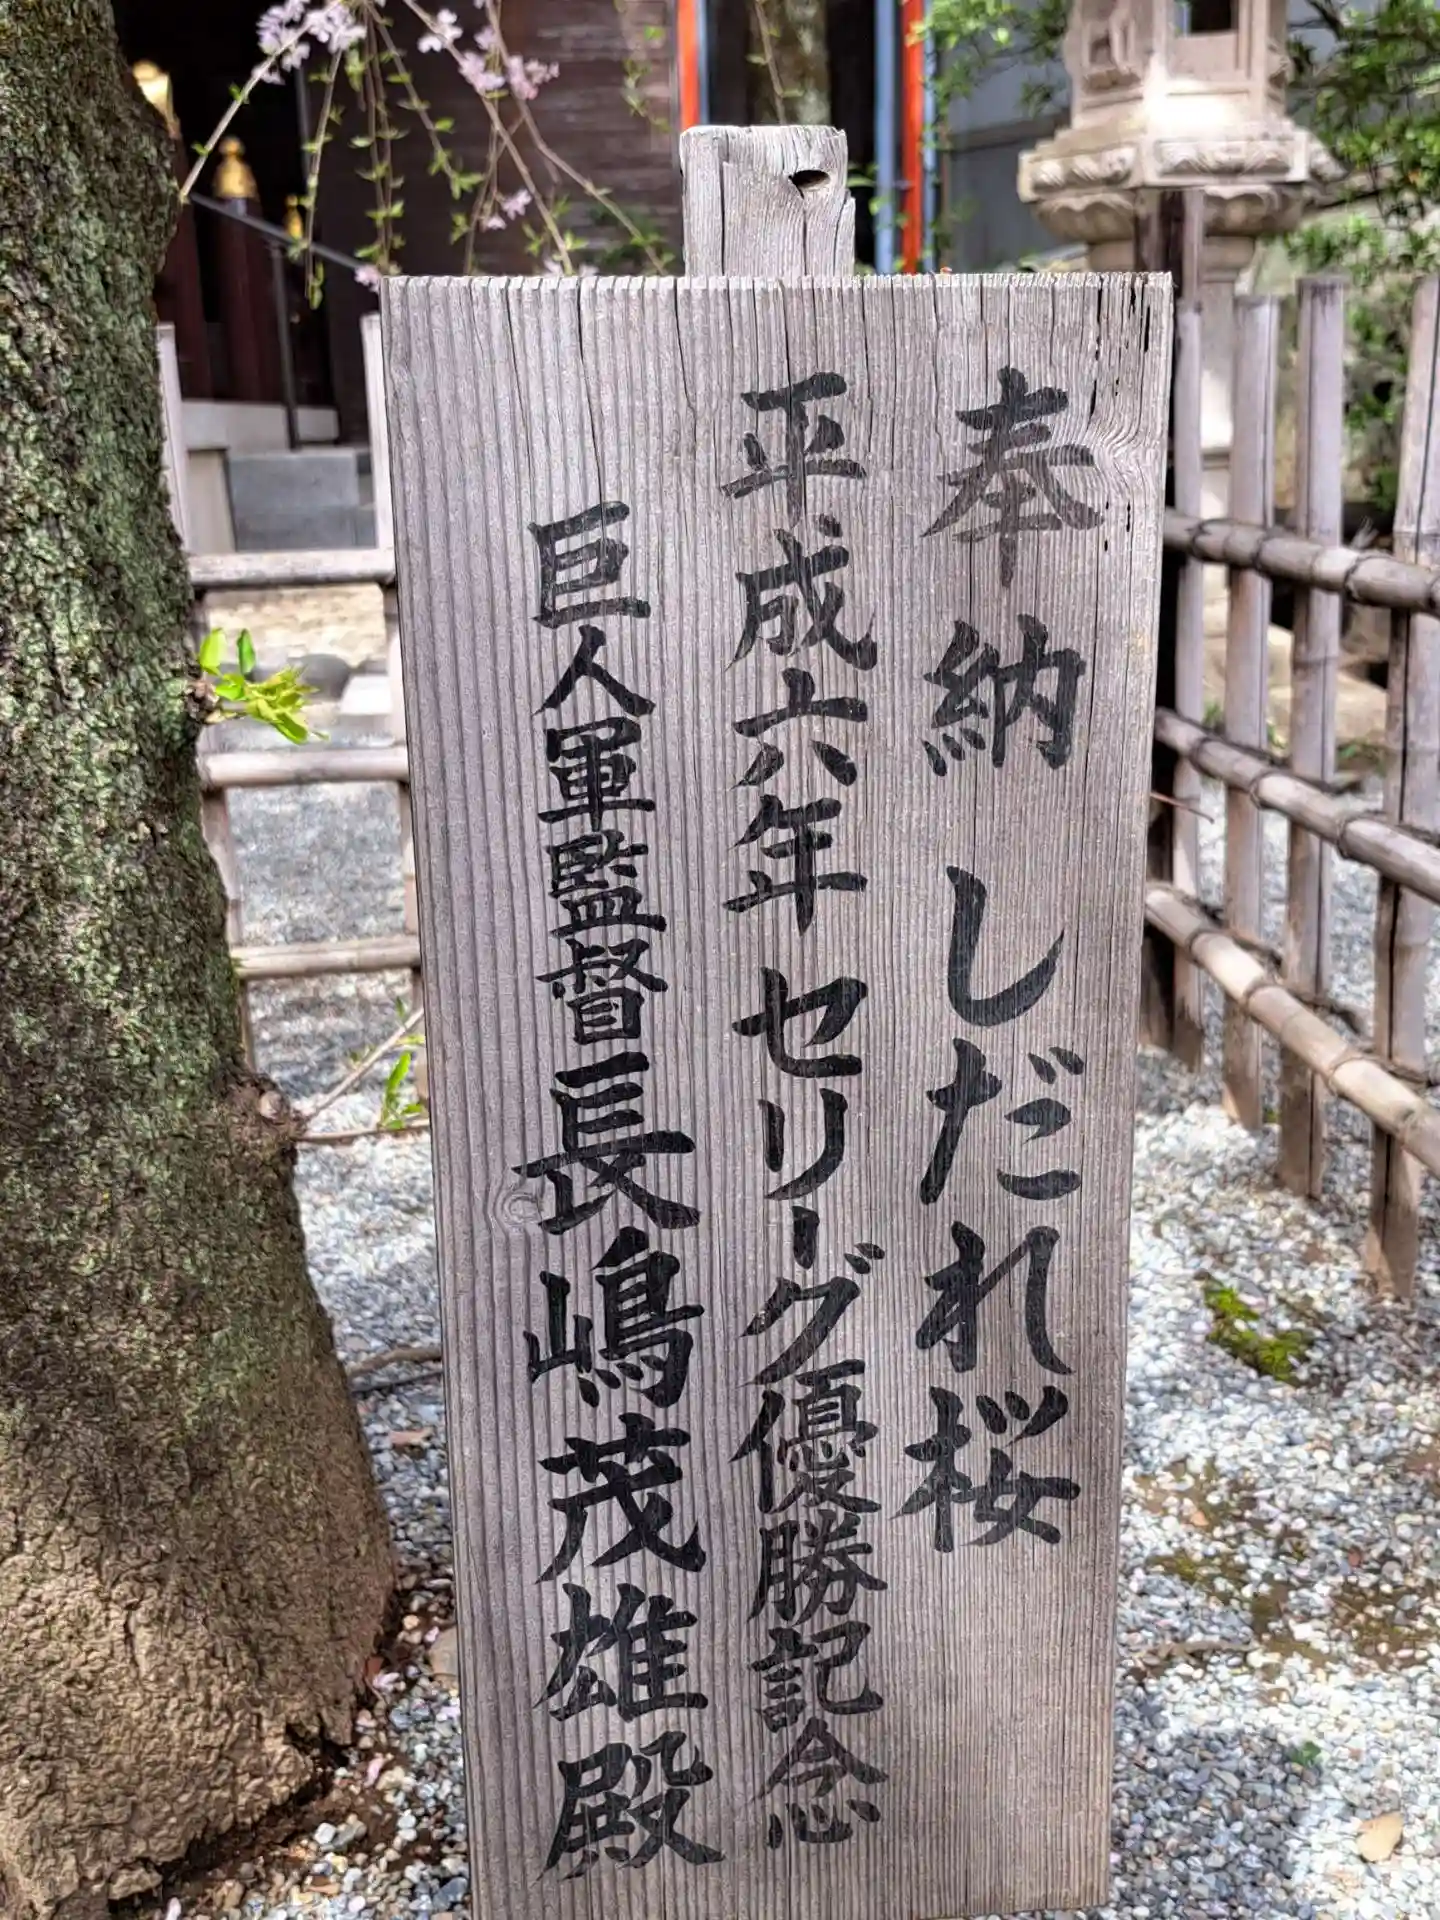 奉納 しだれ桜
平成六年 セリーグ優勝記念
巨人軍監督 長嶋茂雄殿